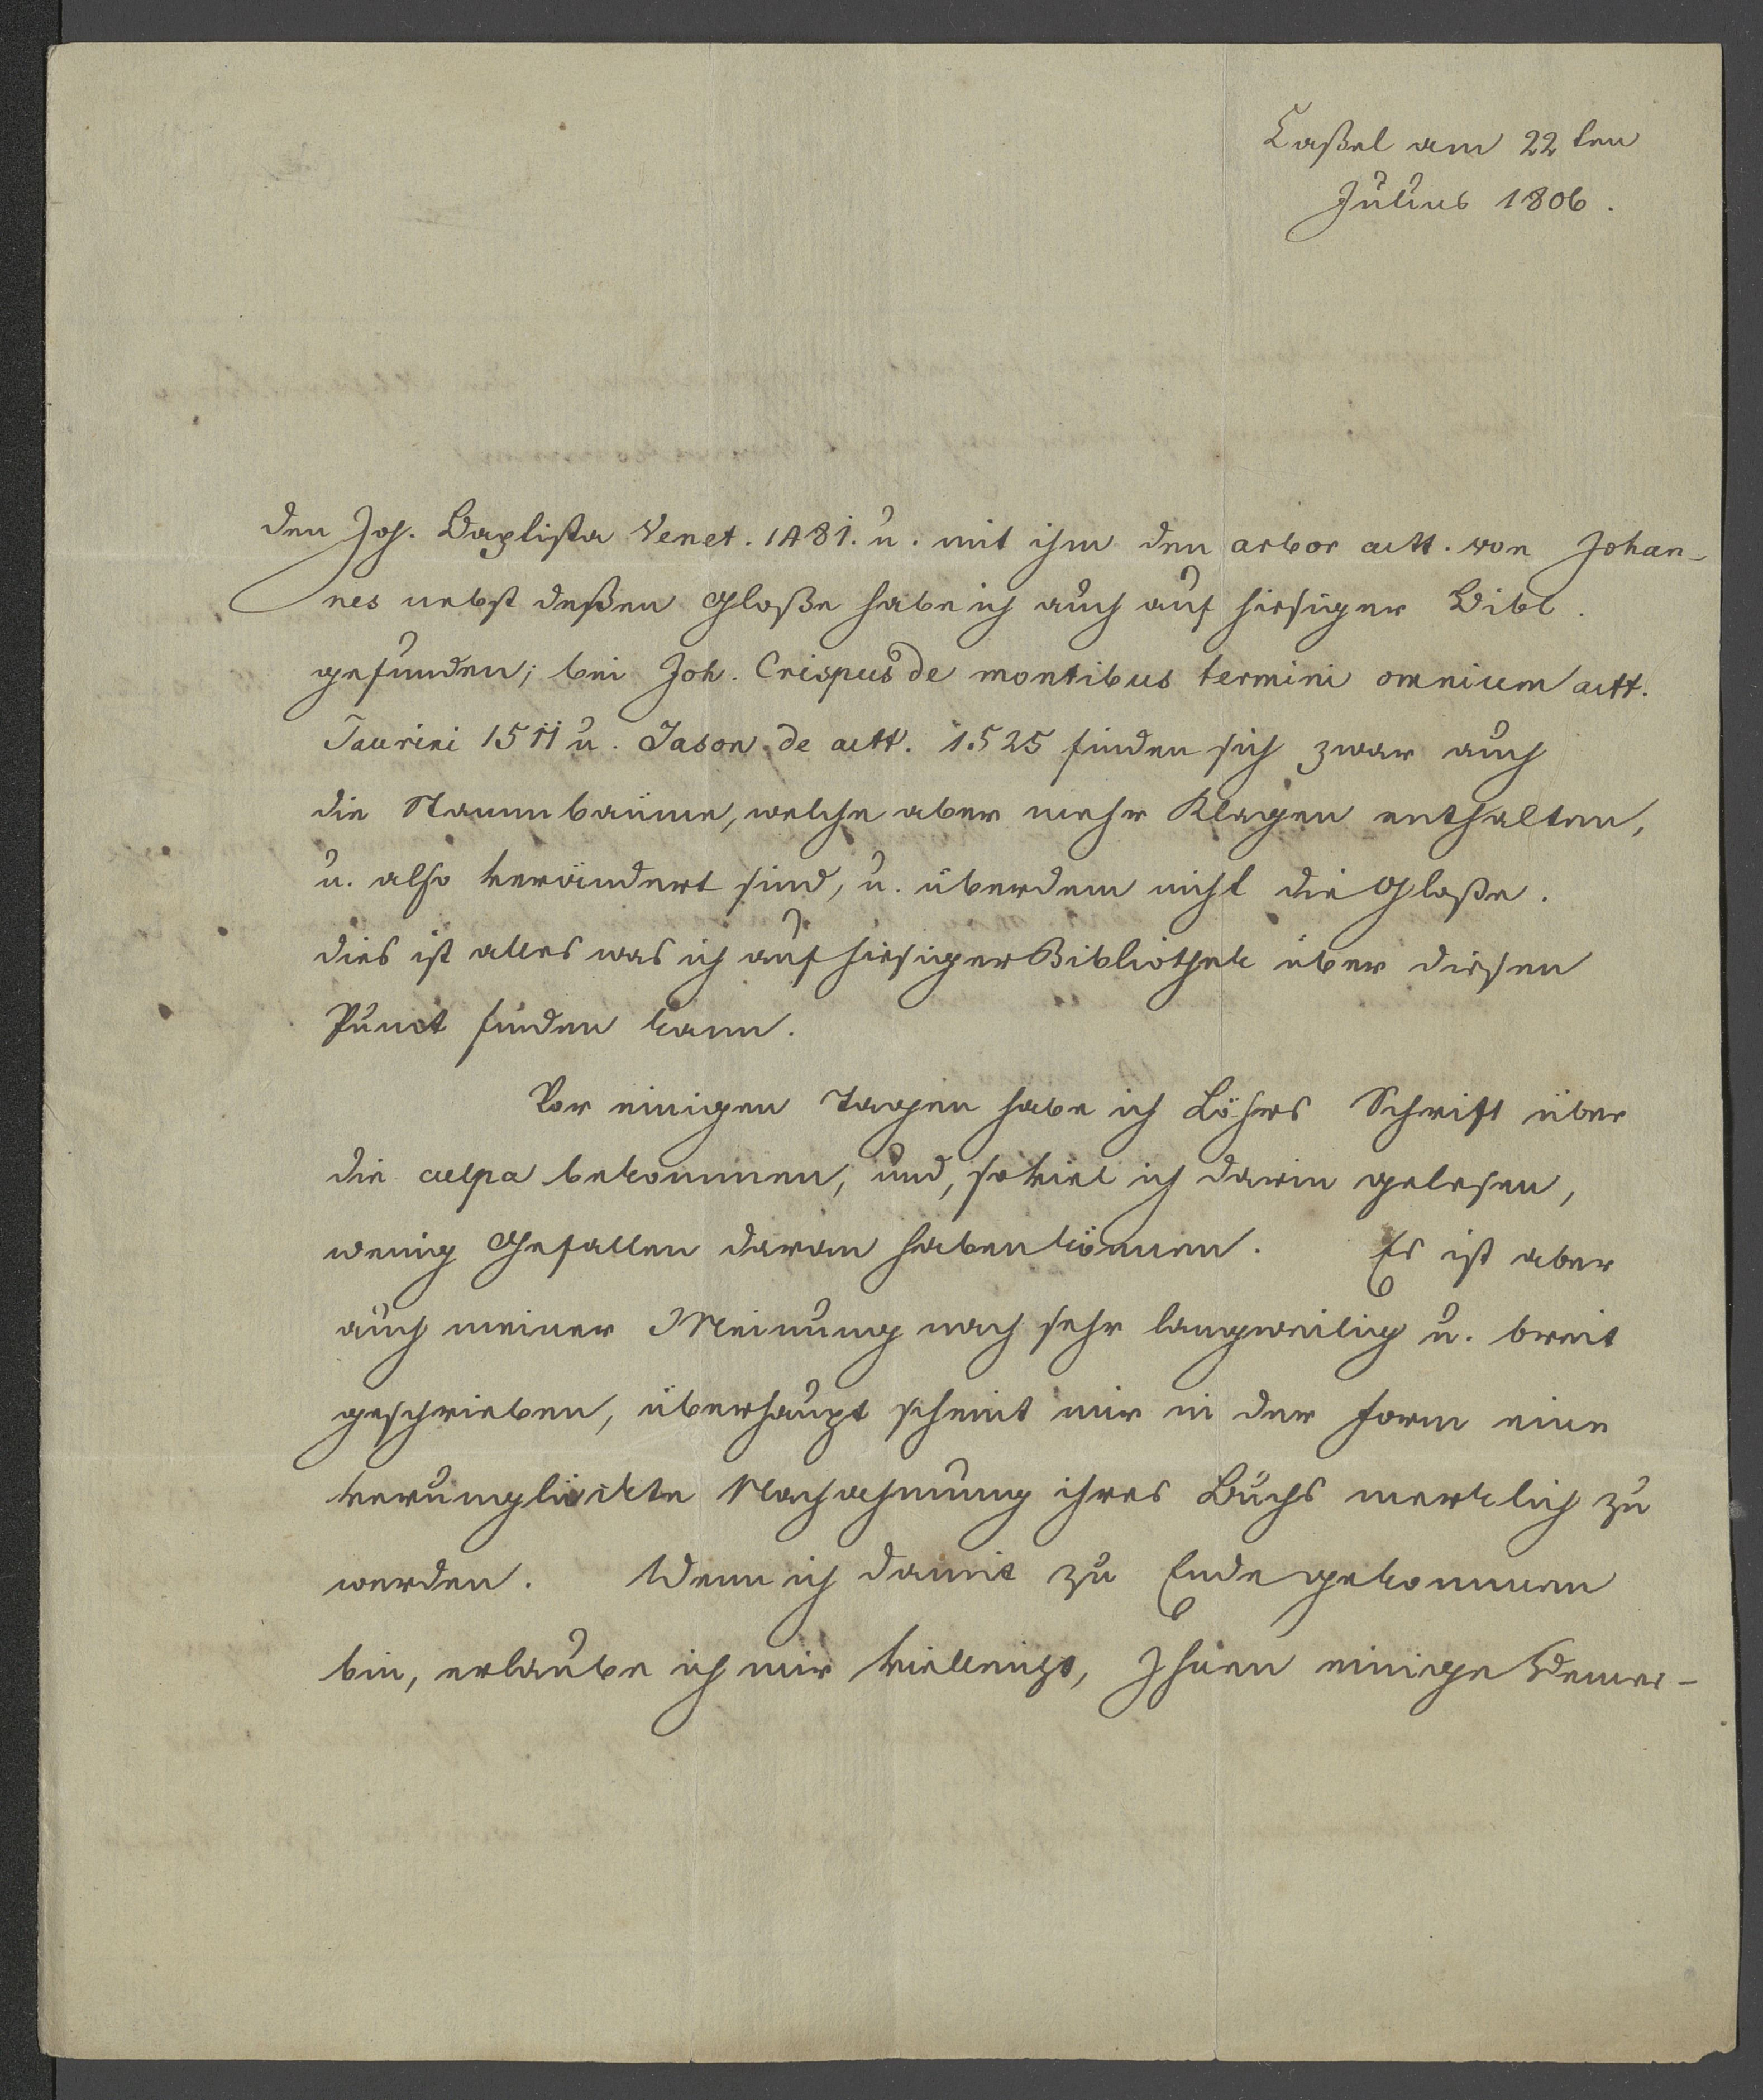 Caßel am 22 ten
Julius 1806.
den Joh. Baptista Venet. 1481. u. mit ihm den arbor actt. von Johan-
nes nebst deßen Gloße habe ich auch auf hiesiger Bibl.
gefunden; bei Joh. Crispus de montibus termini omnium actt.
Taurini 1511 u. Jason de actt. 1525 finden sich zwar auch
die Stammbäume, welche aber mehr Klagen enthalten,
u. also verändert sind, u. überdem nicht die Gloße.
dies ist alles was ich auf hiesiger Bibliothek über diesen
Punct finden kann.
Vor einigen Tagen habe ich Löhrs Schrift über
die culpa bekommen, und, soviel ich darin gelesen,
wenig Gefallen daran haben können. Es ist aber
auch meiner Meinung nach sehr langweilig u. breit
geschrieben, überhaupt scheint mir in der Form eine
verunglückte Nachahmung ihres Buchs merklich zu
werden. Wenn ich damit zu Ende gekommen
bin, erlaube ich mir vielleicht, Ihnen einige Bemer-